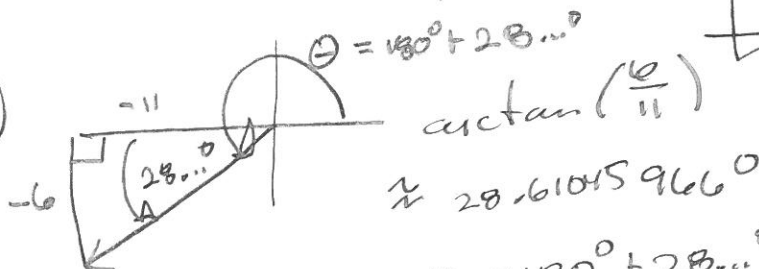 θ = 180° + 28...°
-11
arctan (6/11)
28...°
-6
≈ 28.61045966°
180° + 28...°